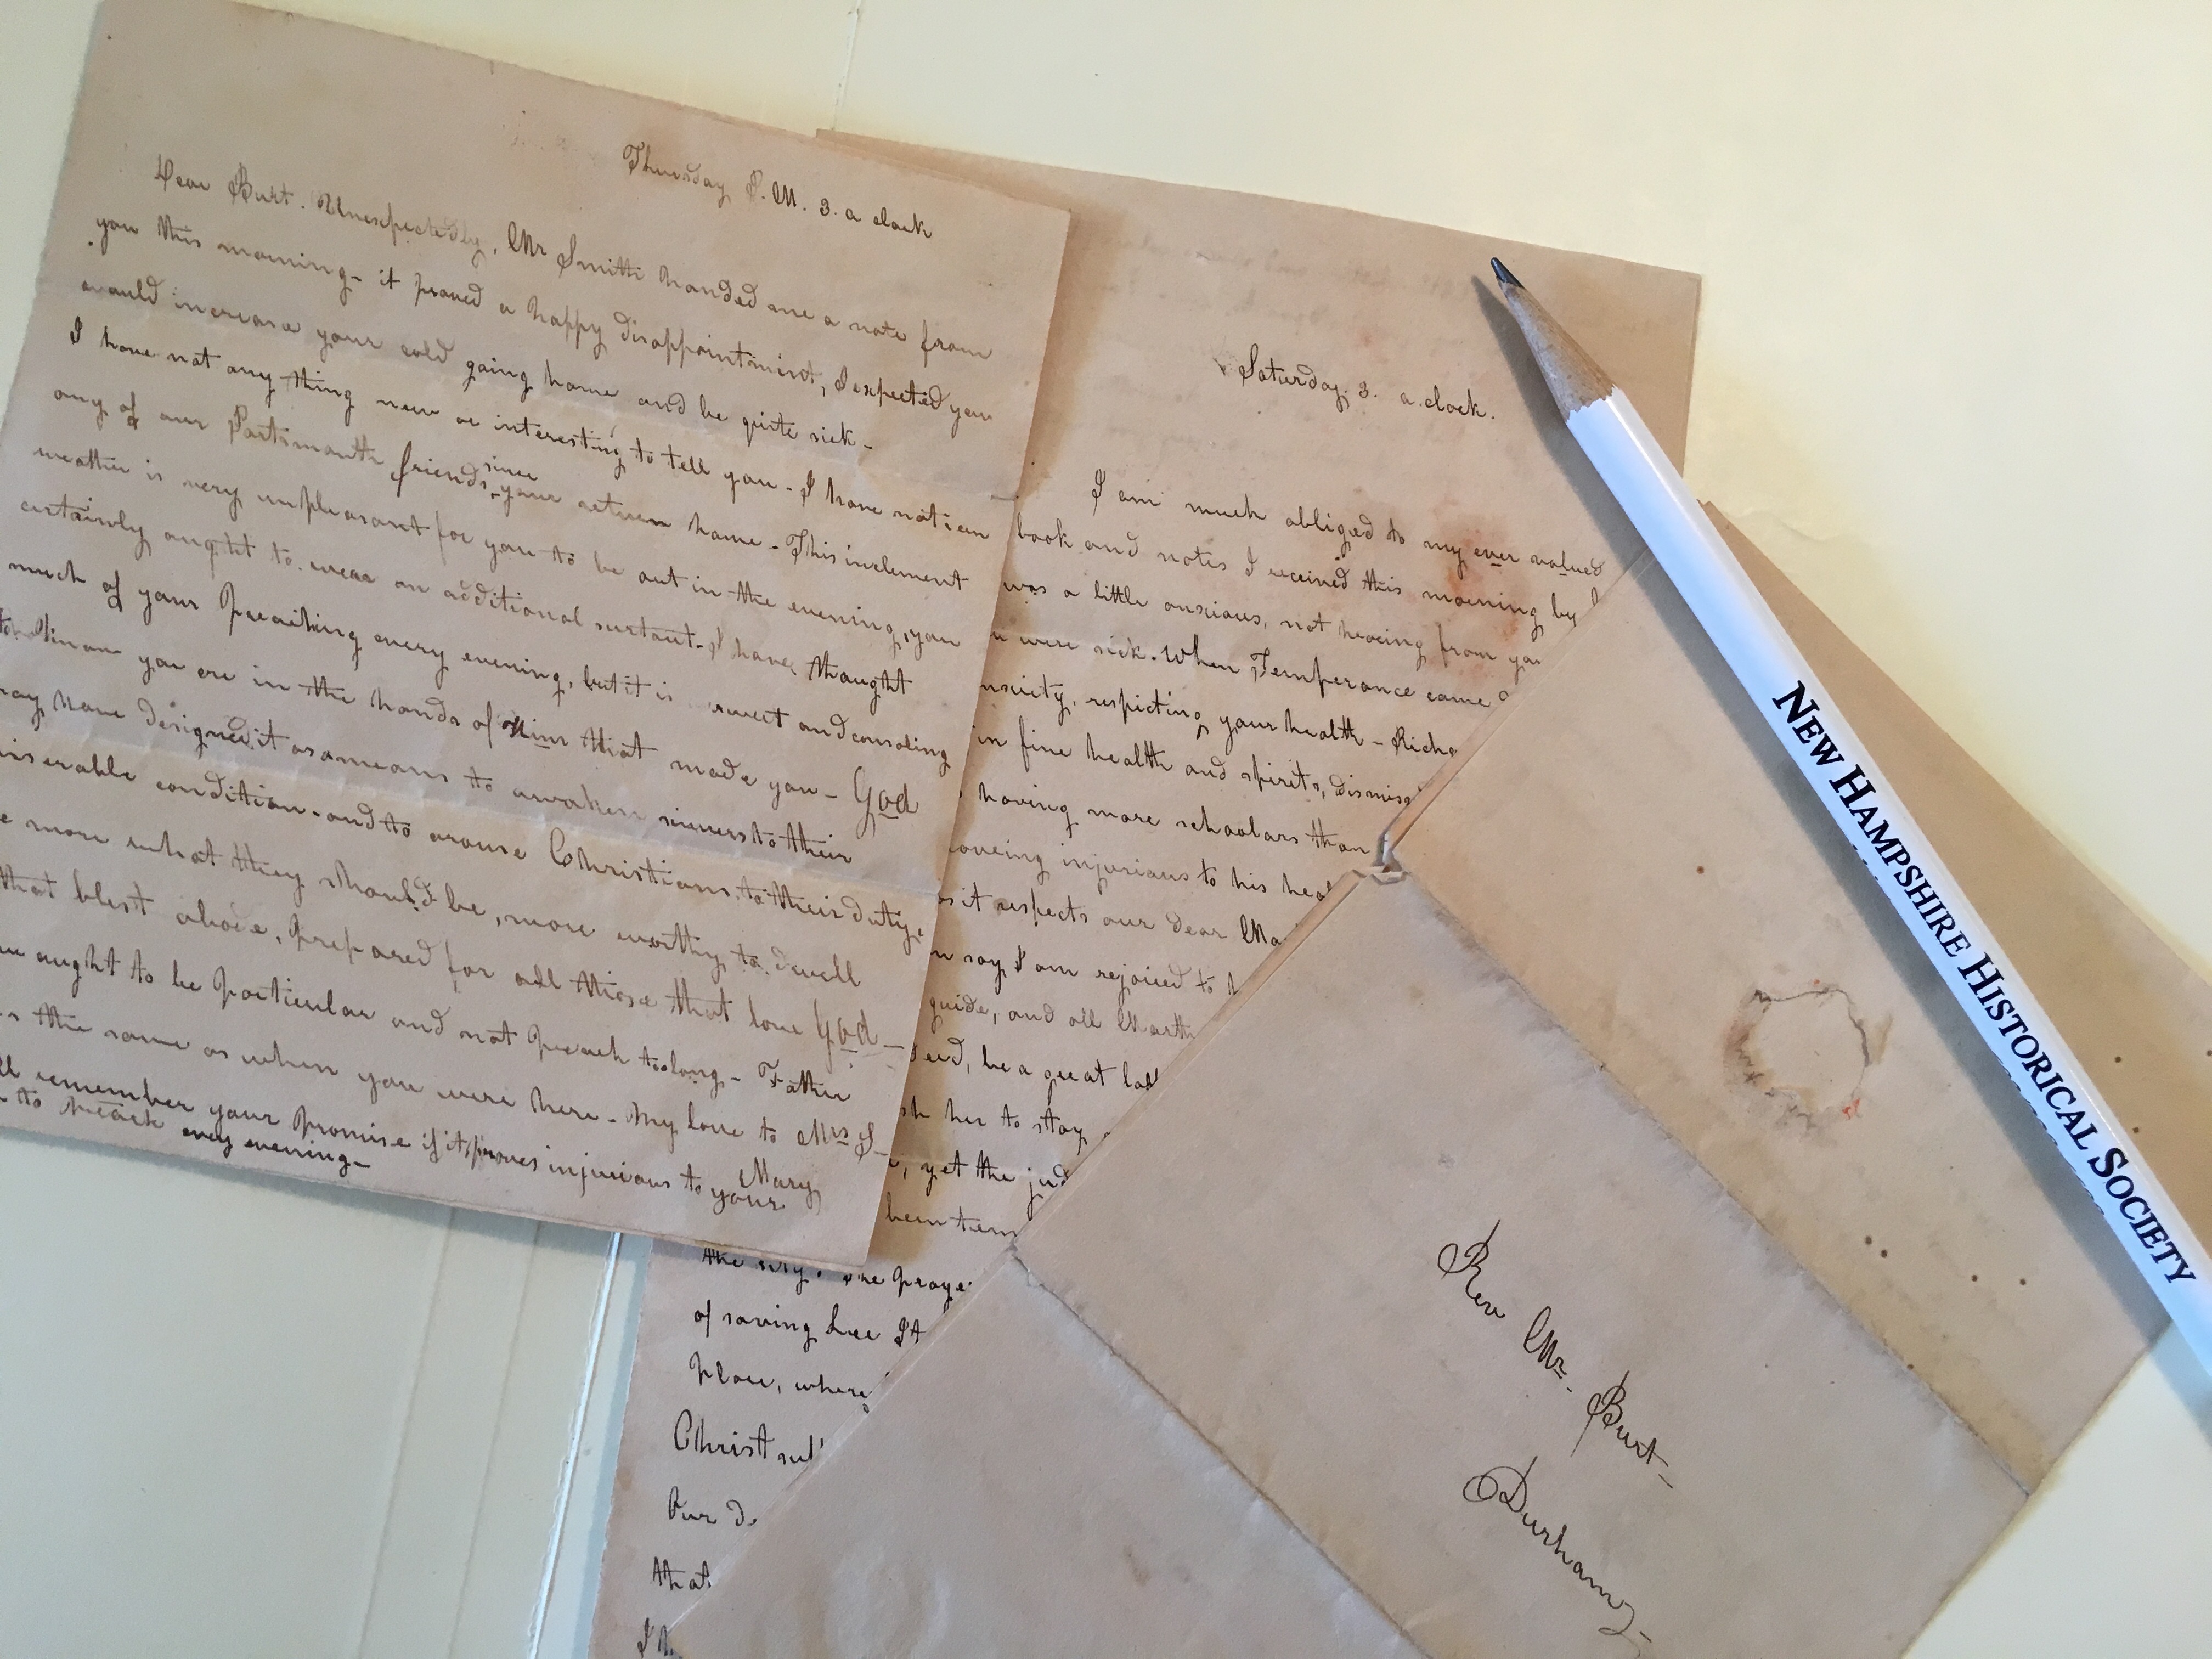 Thursday P. M. 3. a clock
Dear Burt. Unexpectedly, Mr Smith handed me a note from
you this morning - it proved a happy disappointment, I expected you
would increase your cold going home and be quite sick -
I have not any thing new or interesting to tell you - I have not seen
any of our Portsmouth friends since your return home - This inclement
weather is very unpleasant for you to be out in the evening, you
certainly ought to wear an additional surtout - I have thought
much of your Preaching every evening, but it is sweet and consoling
to know you are in the hands of Him that made you - God
may have designed it as a means to awaken sinners to their
miserable condition - and to arouse Christians to their duty,
more what they should be, more worthy to dwell
that blest abode, prepared for all those that love God -
ought to be particular and not preach too long - Father
the same as when you were here - My love to Mrs S -
remember your promise if it proves injurious to your
to preach every evening -
Mary
Saturday. 3. a. clock.
I am much obliged to my ever valued
book and notes I received this morning by
was a little anxious, not hearing from you
were sick. When Temperance came
respecting your health - Rich
in fine health and spirits, dismiss
having more schoolars than
injurious to his heal
as it respects our dear Ma
say I am rejoiced to h
guide, and all Marth
be a great lab
her to stay
yet the jud
been tem
the praye
of saving Lee St
place, where
Christ
Our d
that
I h
Rev Mr. Burt -
Durham -
NEW HAMPSHIRE HISTORICAL SOCIETY